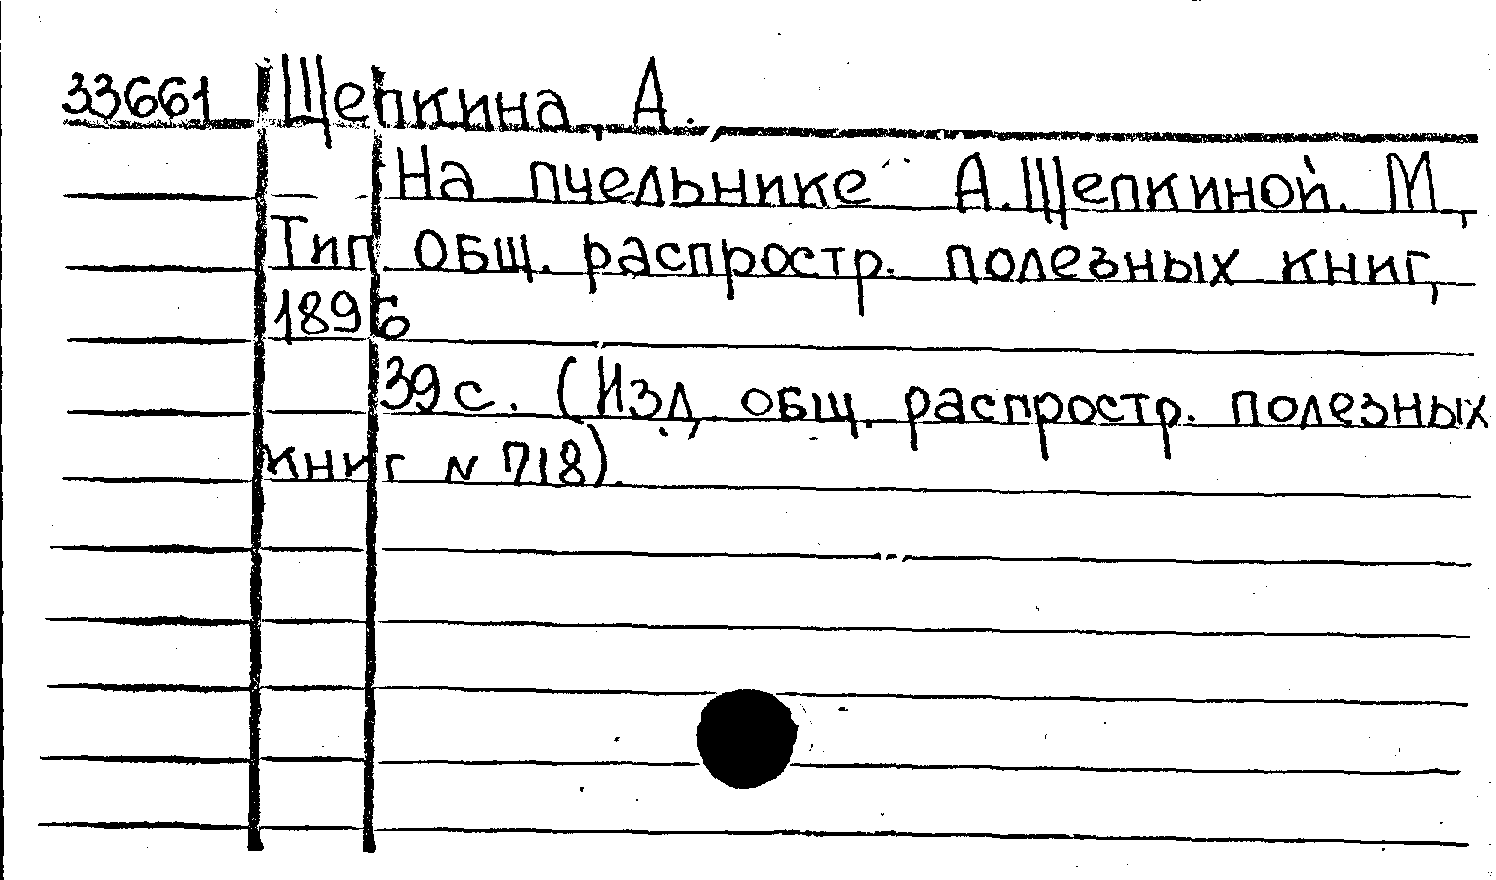 33661 Щепкина, А.
На пчельнике А.Щепкиной. М,
Тип. общ. распростр. полезных книг,
1896
39с. (Изд, общ. распростр. полезных
книг № 718).